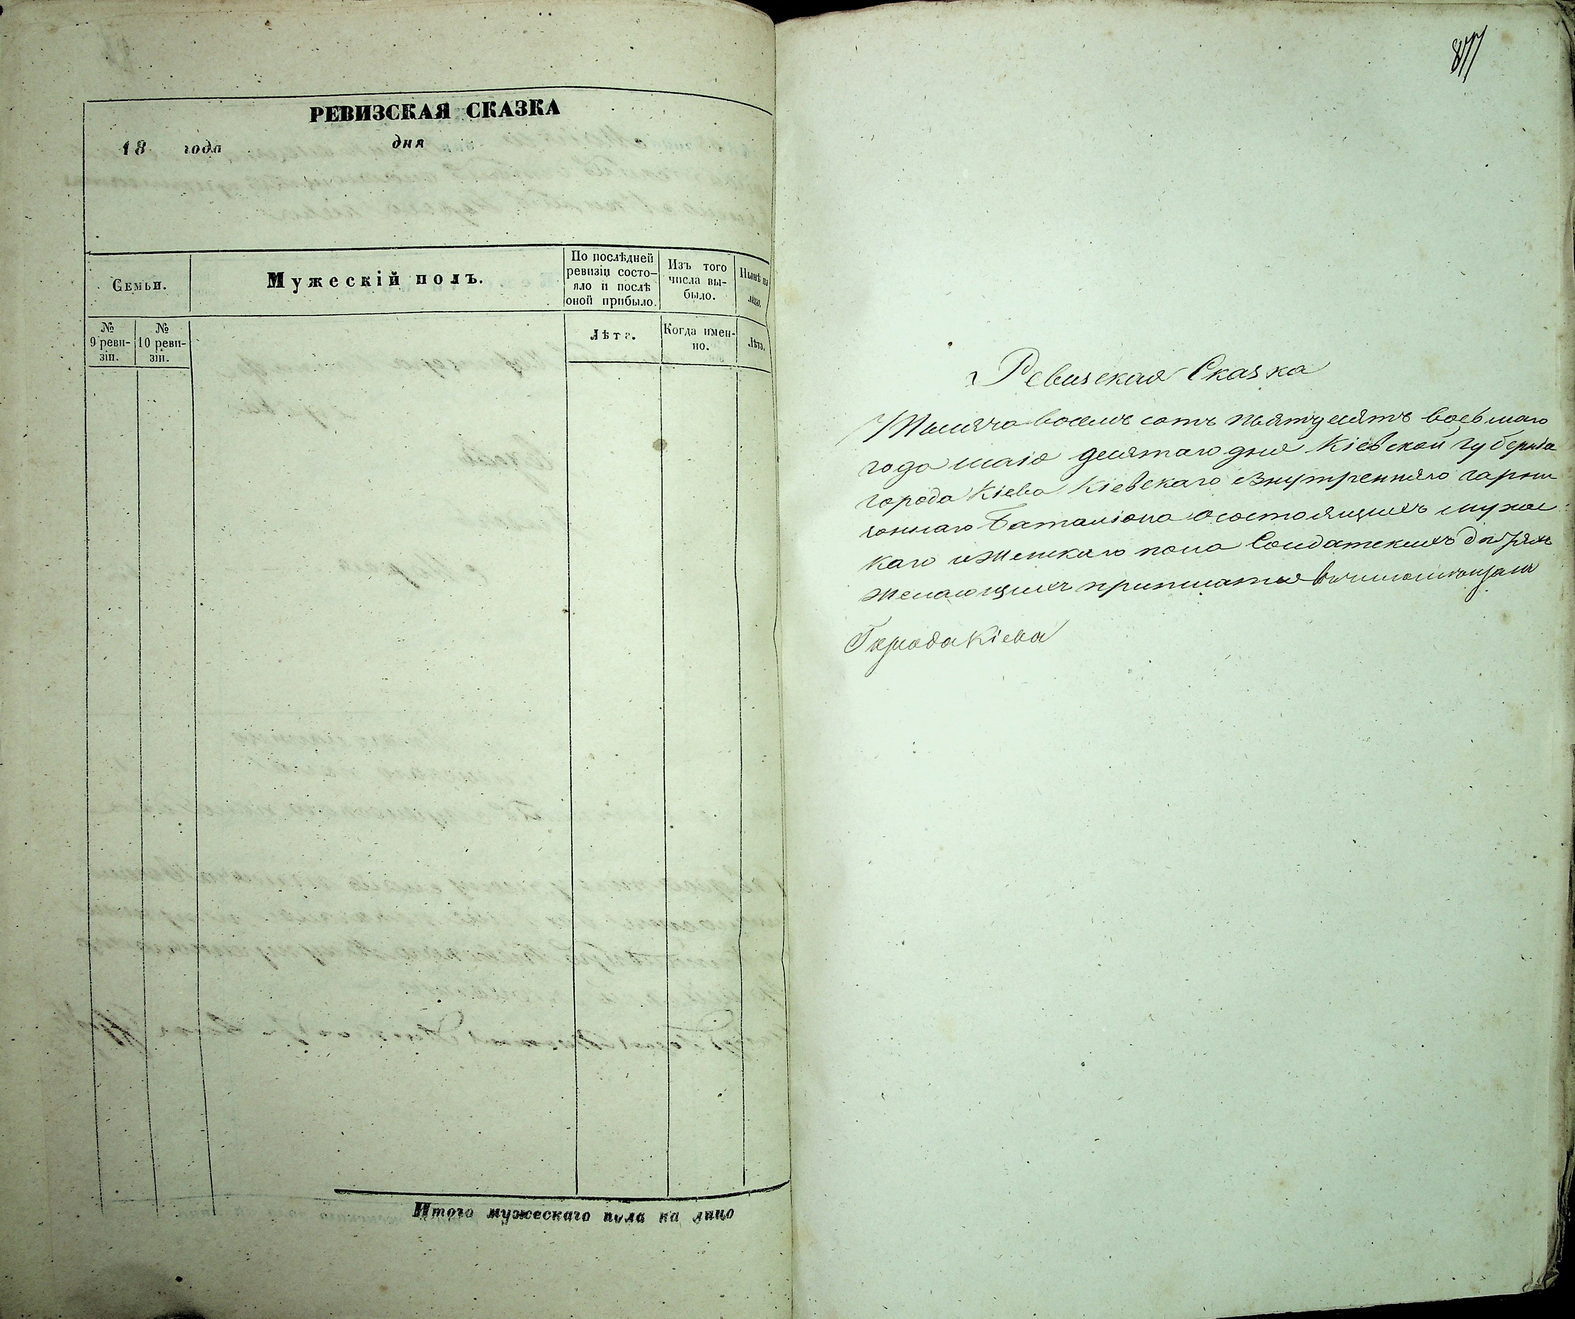 РЕВИЗСКАЯ СКАЗКА
18 года дня
Семьи.
Мужескій полъ.
По послѣдней ревизіи состояло и послѣ оной прибыло.
Изъ того числа выбыло.
Нынѣ на лицо.
№ 9 ревизіи.
№ 10 ревизіи.
Лѣта.
Когда именно.
Лѣта.
Итого мужескаго пола на лицо
877
Ревизская Сказка
Тысяча восемь сотъ пятьдесятъ восьмаго
года маія десятаго дня Кіевской губерніи
города Кіева Кіевскаго внутренняго гарни
зоннаго Баталіона о состоящихъ мужес
каго и женскаго пола Солдатскихъ дѣтяхъ
желающихъ приписаться
Города Кіева